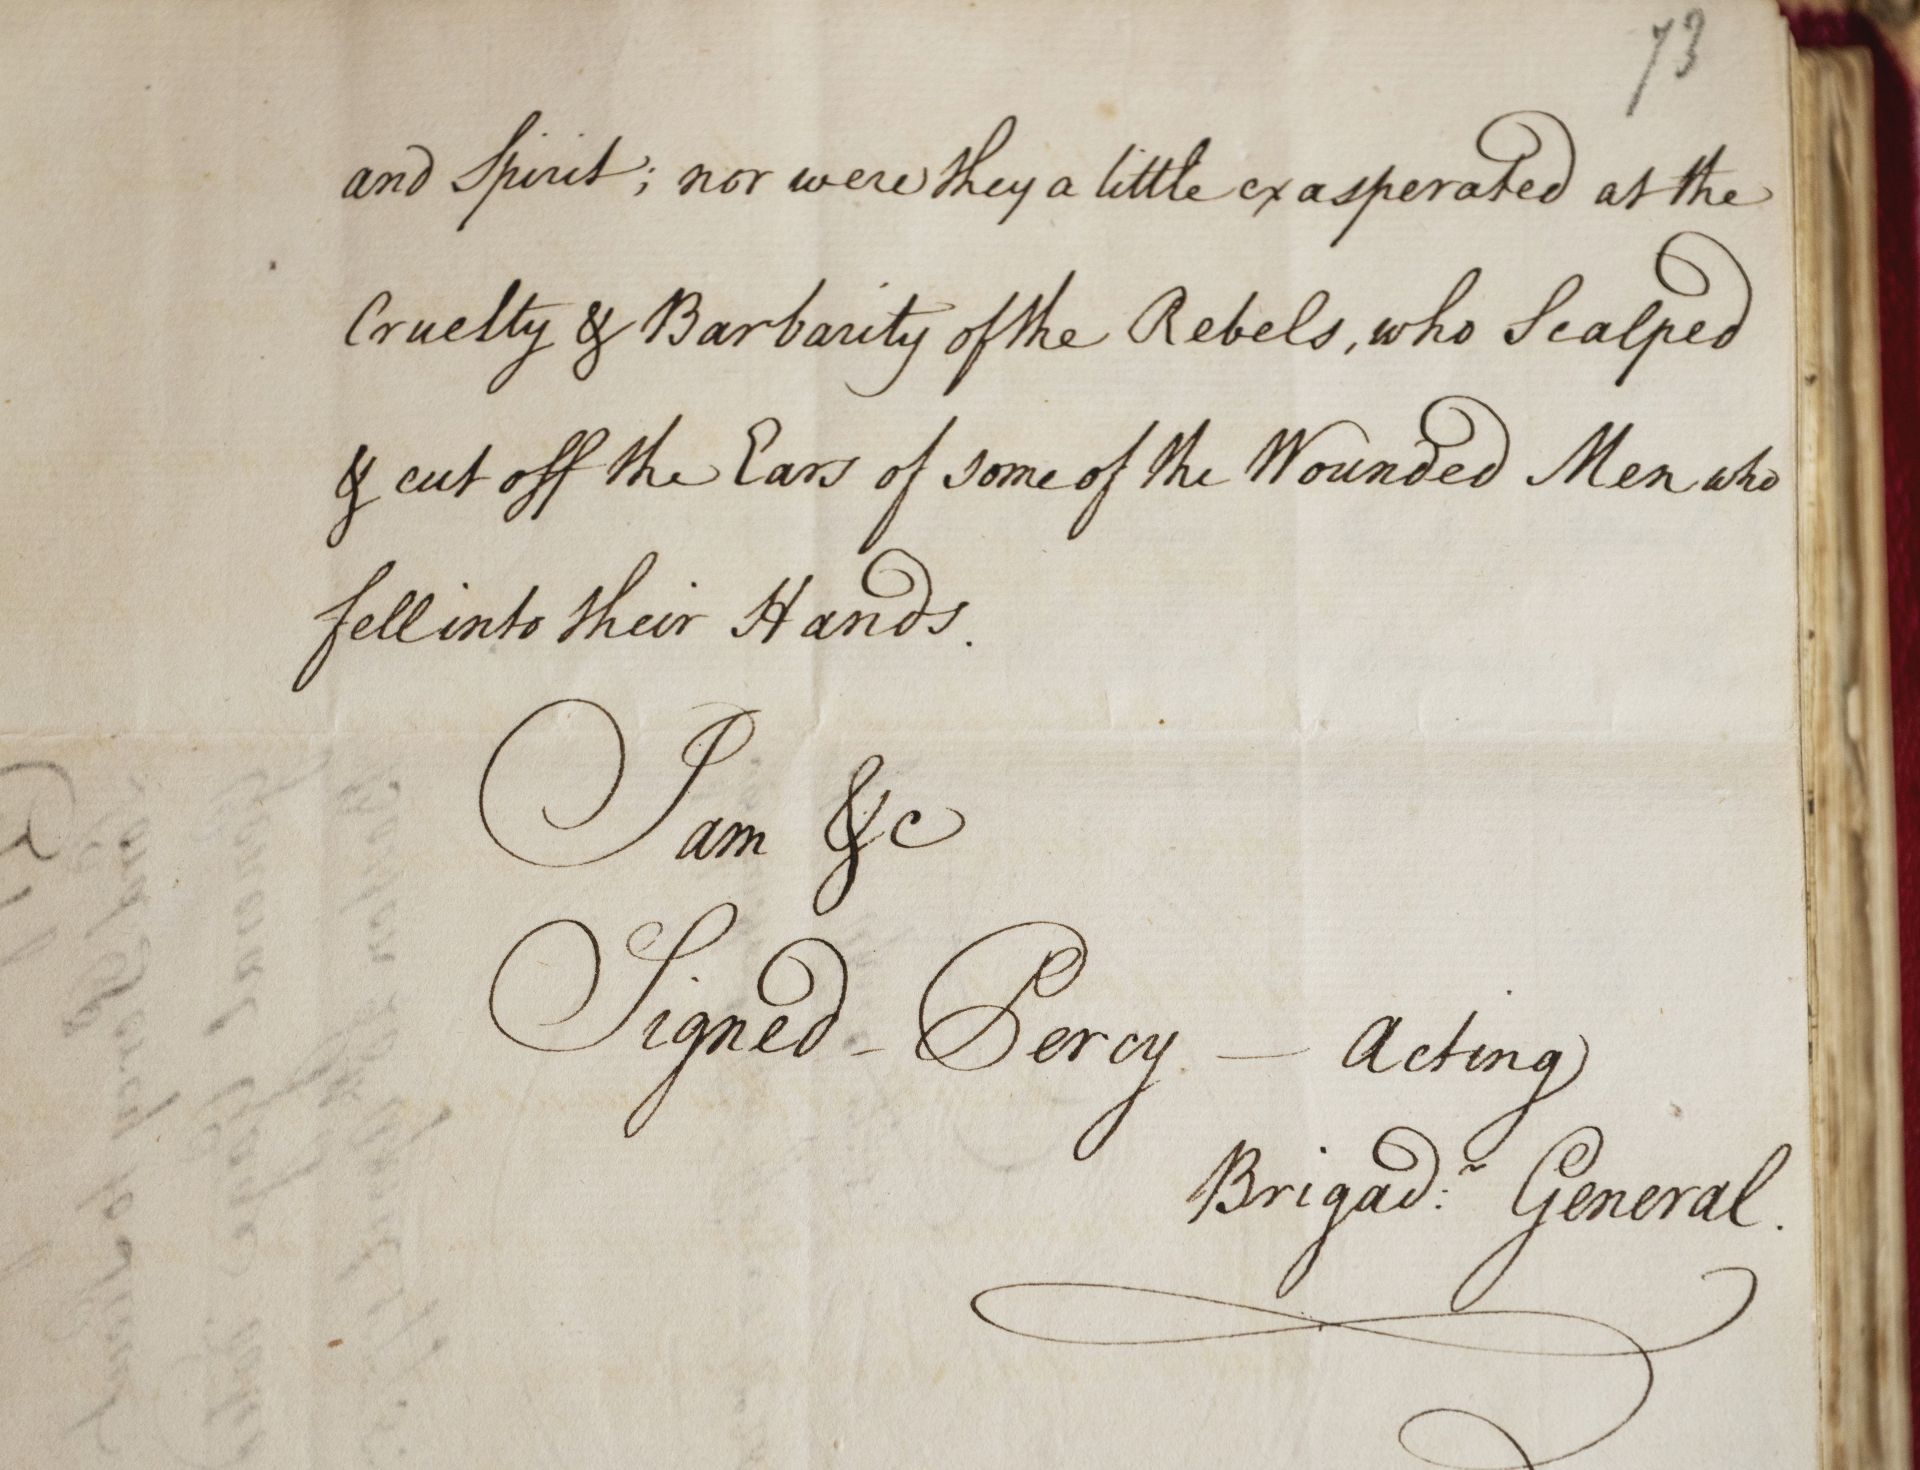 73
and Spirit; nor were they a little exasperated at the
Cruelty & Barbarity of the Rebels, who Scalped
& cut off the Ears of some of the Wounded Men who
fell into their Hands.
I am &c
Signed - Percy - Acting
Brigad:r General.